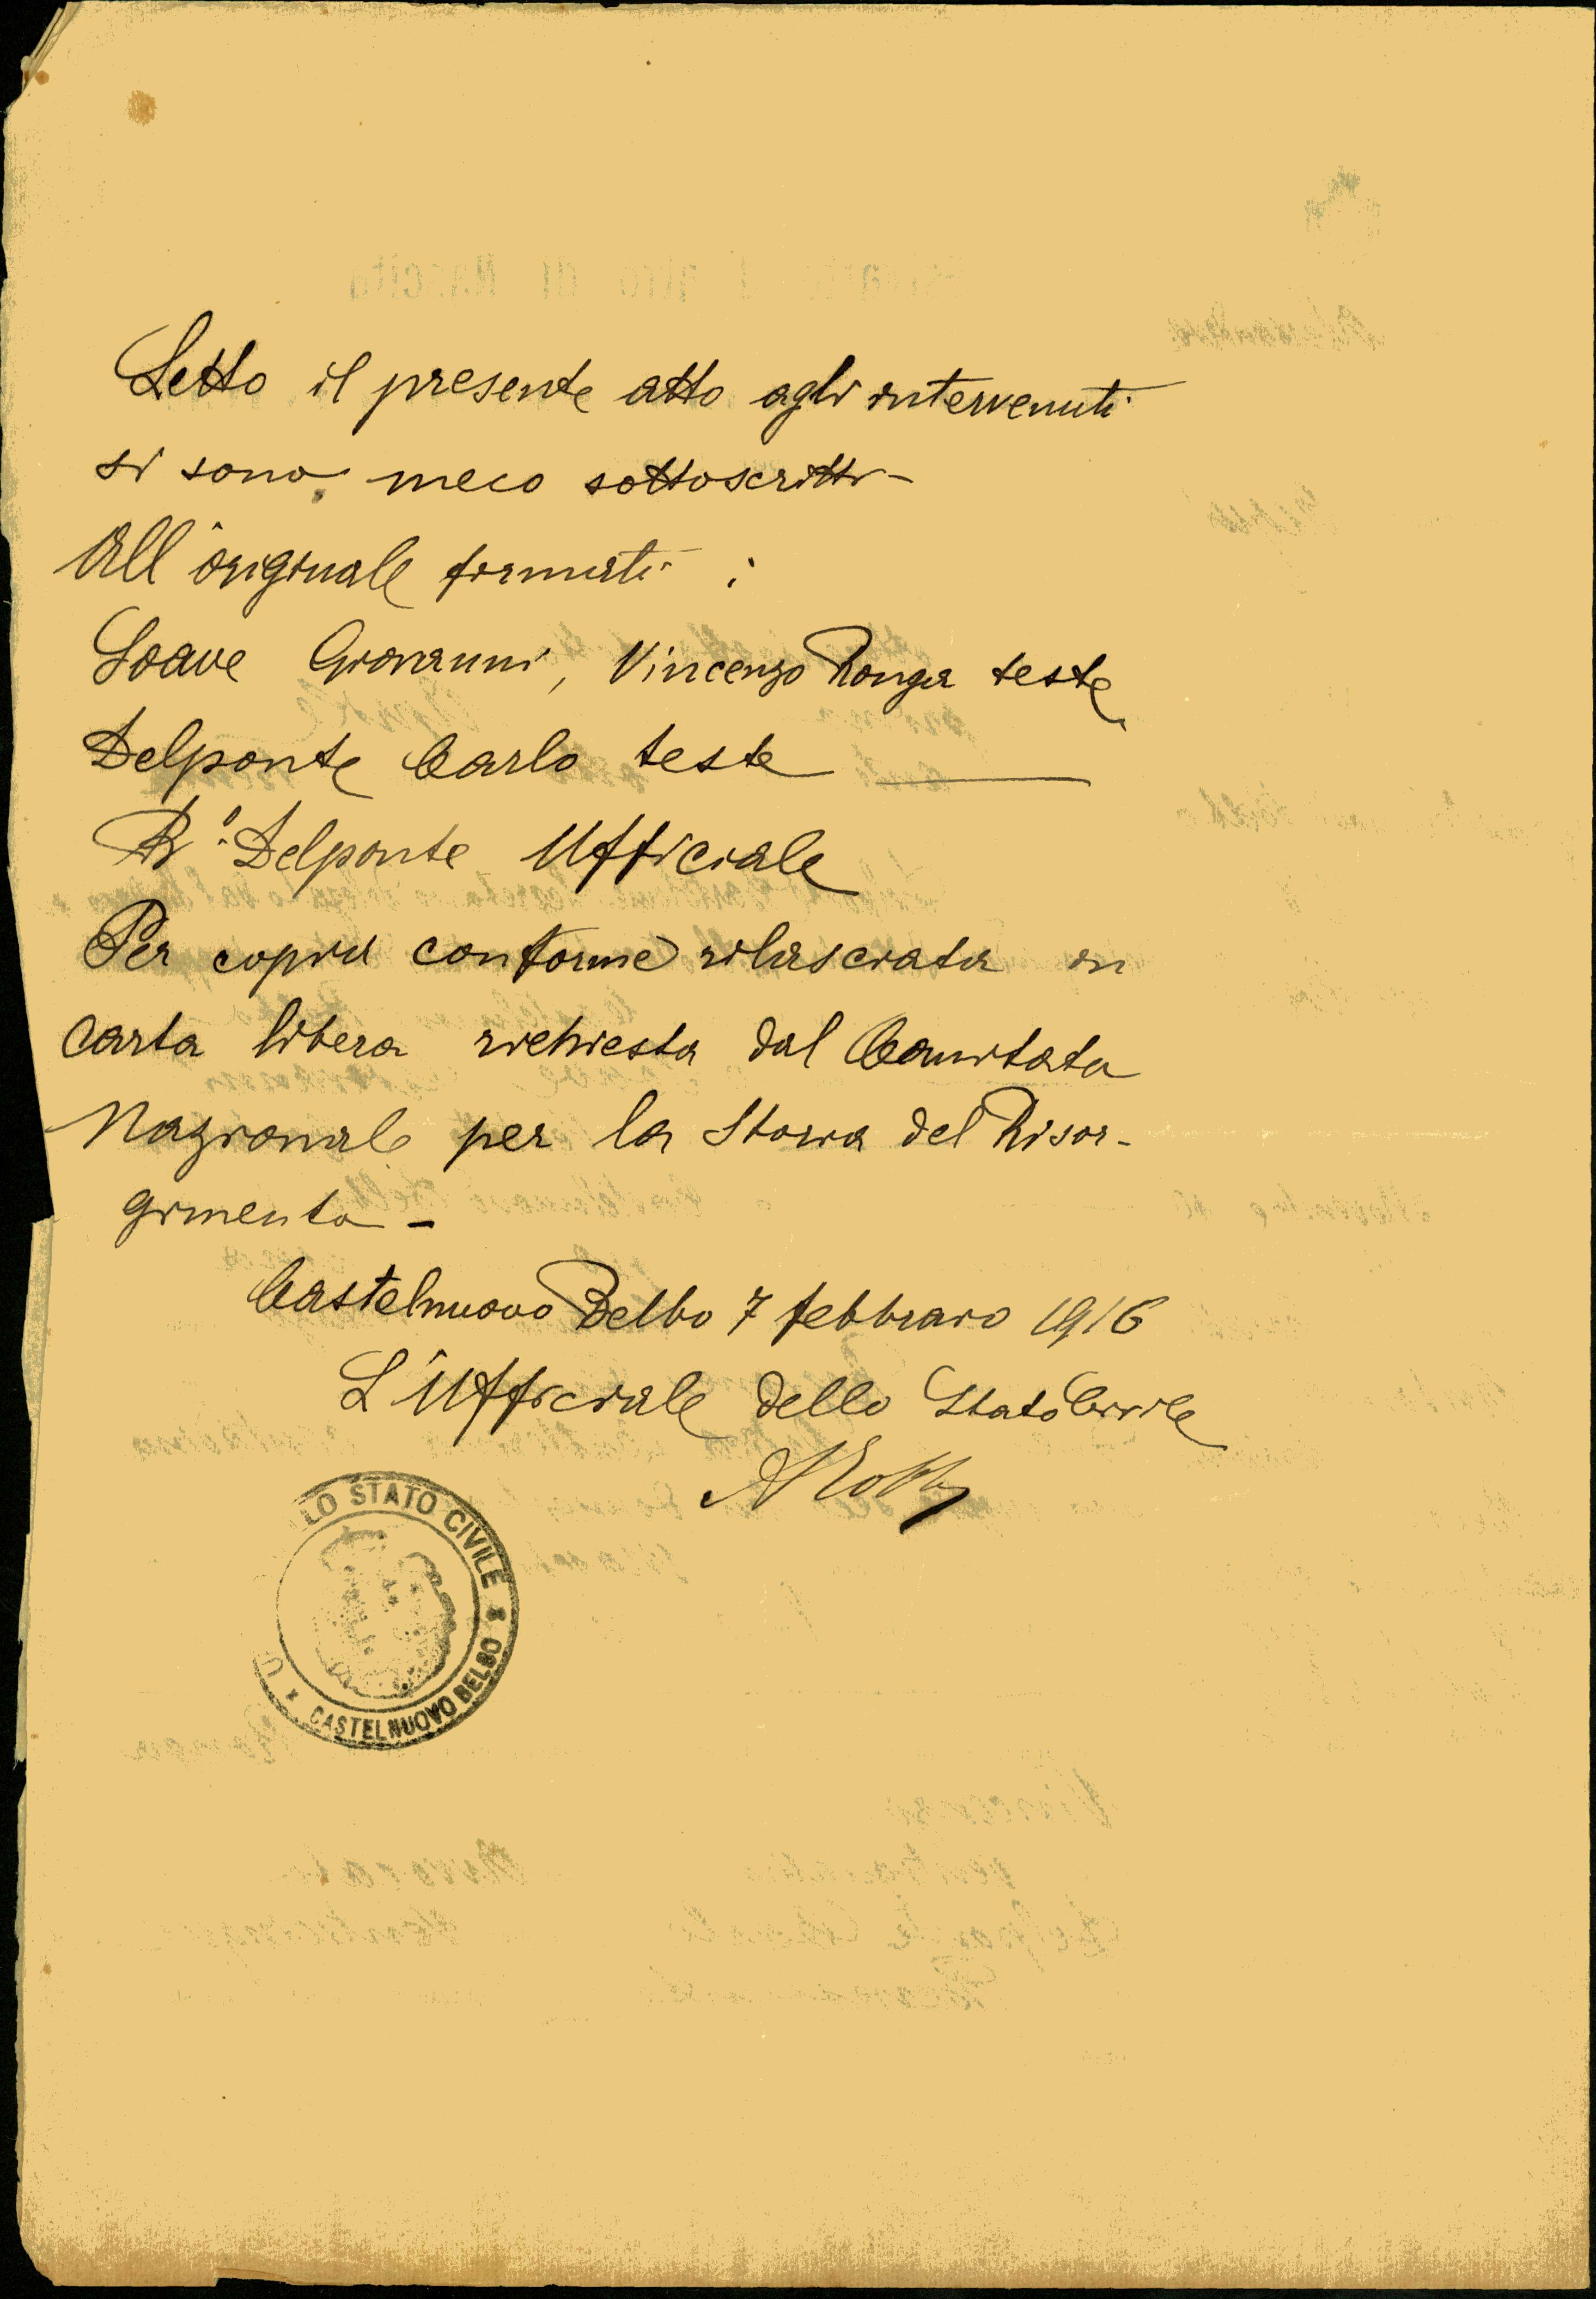 Letto il presente atto agli intervenuti
si sono meco sottoscritti -
All'originale firmati :
Soave Giovanni, Vincenzo Ronga teste
Delponte Carlo teste
Delponte Ufficiale
Per copia conforme rilasciata in
carta libera richiesta dal Comitato
Nazionale per la Storia del Risor-
gimento -
Castelnuovo Belbo 7 febbraio 1916
L'Ufficiale dello Stato Civile
LO STATO CIVILE
CASTELNUOVO BELBO